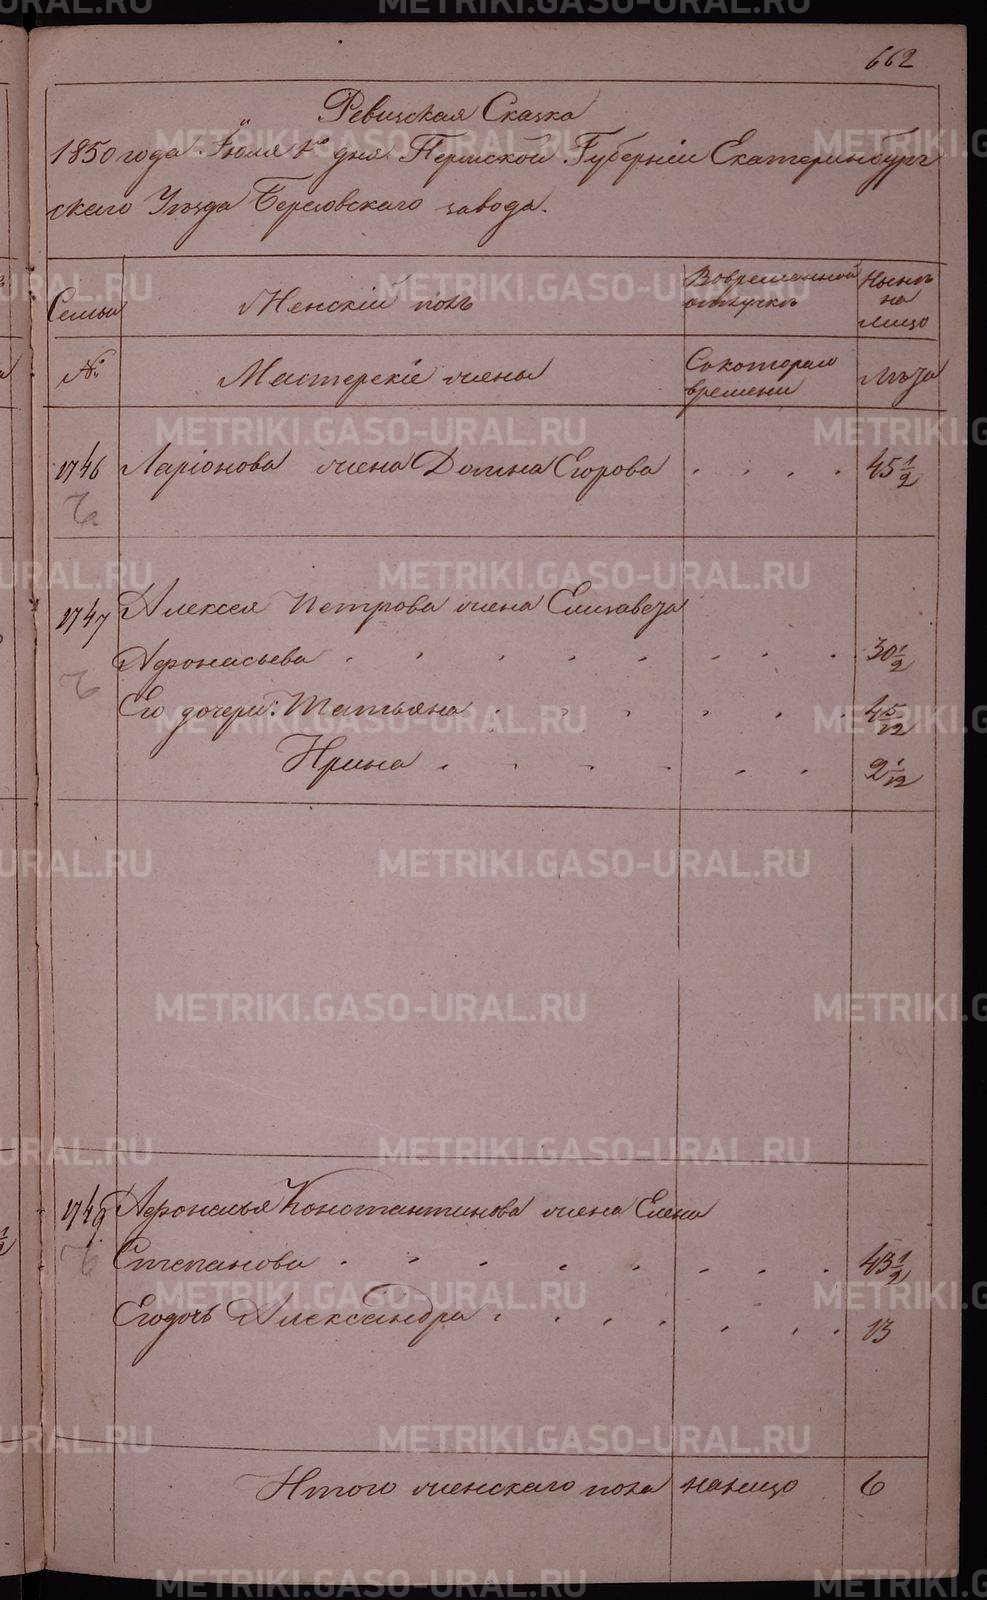 662
Ревизская Сказка
1850 года Июля 1го дня Пермской Губернiи Екатеринбург
скаго Уѣзда Березовскаго завода.
Семьи
Женскiй полъ
Вовременной
отлучкѣ
Нынѣ
на
лицо
№
Мастерскiе жены
Скотораго
времени
Лѣта
1746 Ларiонова жена Домна Егорова 45 1/2
1747 Алексея Петрова жена Елизавета
Афонасьева 30 1/2
Его дочери: Татьяна 4 5/12
Ирина 2 1/12
1749 Афонасья Константинова жена Елена
Степанова 43 1/2
Егодочь Александра 13
Итого женскаго пола налицо 6
METRIKI.GASO-URAL.RU